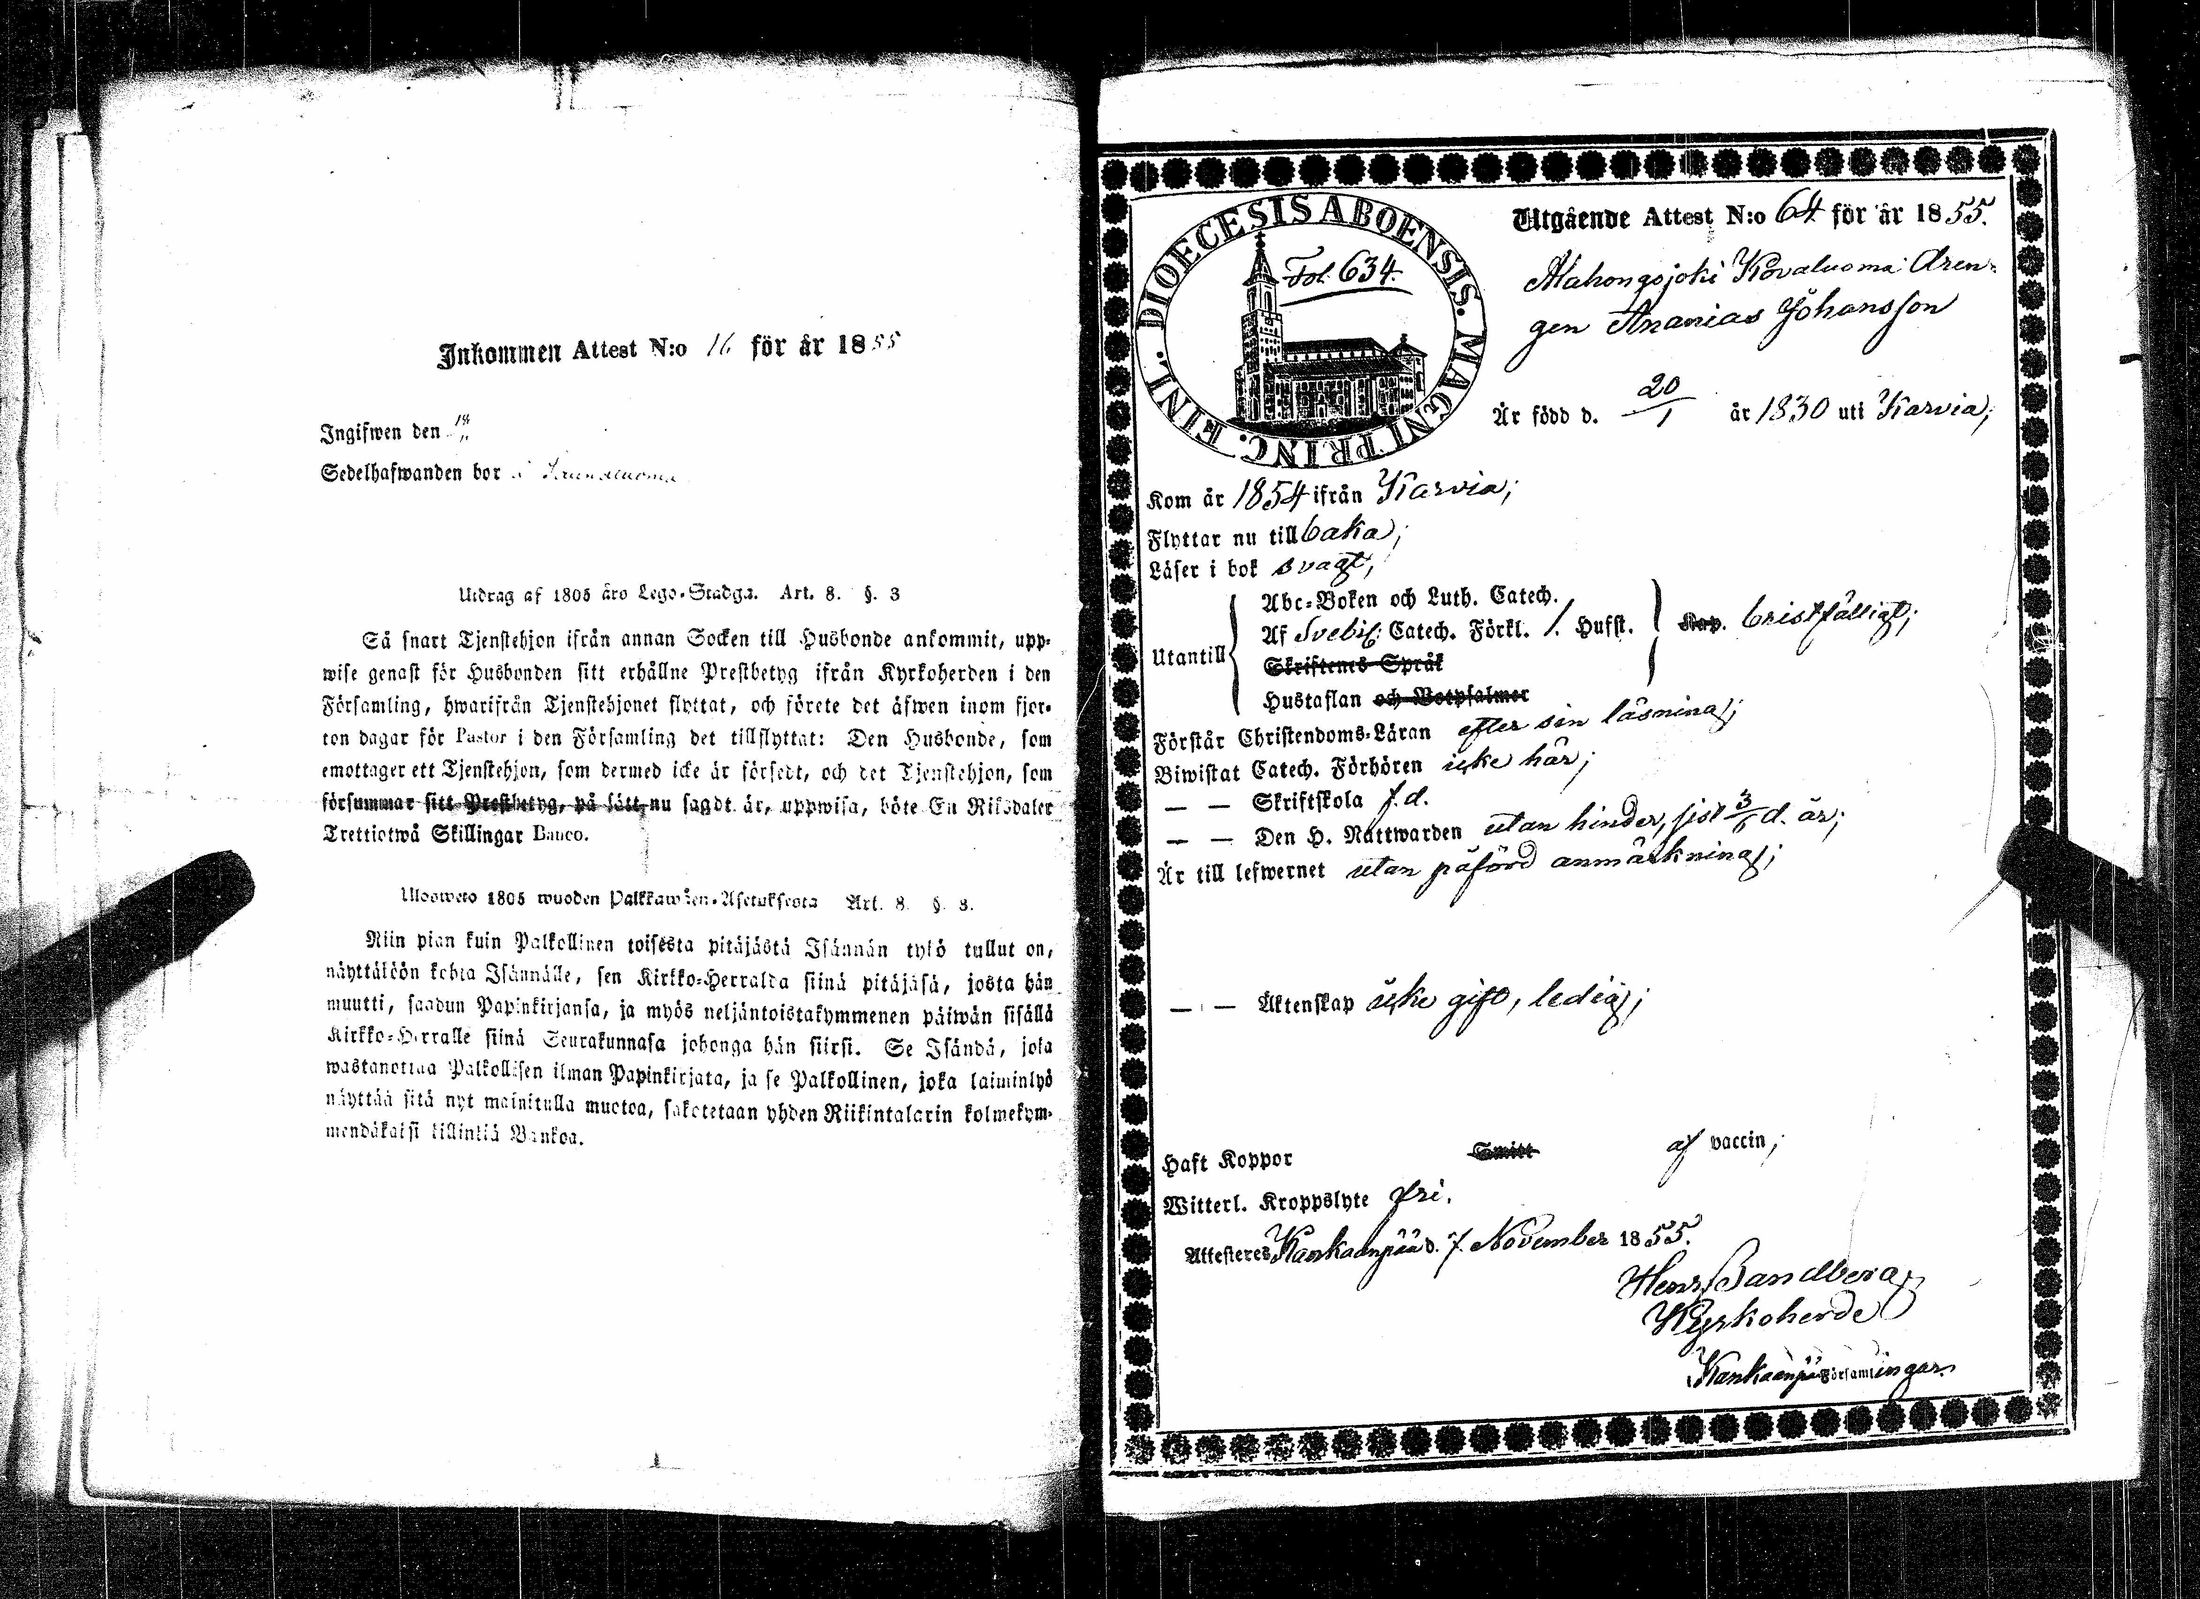 Inkommen Attest N:o 16 för år 1855
Ingifwen den
Sedelhafwanden bor
Utdrag af 1805 års Lego-Stadga. Art. 8. §. 3
Så snart Tjenstehjon ifrån annan Socken till Husbonde ankommit, upp-
wise genast för Husbonden sitt erhållne Prestbetyg ifrån Kyrkoherden i den
Församling, hwarifrån Tjenstehjonet flyttat, och förete det äfwen inom fjor-
ton dagar för Pastor i den Församling det tillflyttat: Den Husbonde, som
emottager ett Tjenstehjon, som dermed icke är försedt, och det Tjenstehjon, som
försummar sitt Prestbetyg, på sätt nu sagdt är, uppwisa, böte En Riksdaler
Trettiotwå Skillingar Banco.
Uloosweto 1805 wuoden Palkkawäen-Asetuksesta Art. 8. §. 3.
Niin pian kuin Palkollinen toisesta pitäjästä Isännän tykö tullut on,
näyttäköön kohta Isännälle, sen Kirkko-Herralda siinä pitäjäsä, josta hän
muutti, saadun Papinkirjansa, ja myös neljäntoistakymmenen päiwän sisällä
Kirkko-Herralle siinä Seurakunnasa johonga hän siirsi. Se Isändä, joka
wastanottaa Palkollisen ilman Papinkirjata, ja se Palkollinen, joka laiminlyö
näyttää sitä nyt mainitulla muotoa, sakotetaan yhden Riikintalarin kolmekym-
mendäkaksi killinkiä Bankoa.
DIOECESIS ABOENSIS. MAGNI PRINC. FINL.
Fol. 634.
Utgående Attest N:o 64 för år 1855.
Alahongojoki Kovaluoma Dren-
gen Ananias Johansson
Är född d. 20/1 år 1830 uti Karvia;
Kom år 1854 ifrån Karvia;
Flyttar nu till baka;
Läser i bok svagt,
Utantill
Abc-Boken och Luth. Catech.
Af Svebil: Catech. Förkl. 1. Hufst.
Skriftenes Språk
Hustaflan och Botpsalmer
Kap. bristfälligt;
Förstår Christendoms-Läran efter sin läsning;
Biwistat Catech. Förhören icke här;
— — Skriftskola f.d.
— — Den H. Nattwarden utan hinder, sist 3/6 d. år;
Är till lefwernet utan påförd anmärkning;
— — Äktenskap icke gift, ledig;
Haft Koppor Smitt af vaccin;
Witterl. Kroppslyte fri.
Attesteres Kankaanpää d. 7. November 1855.
Henr. Sandberg
Kyrkoherde
Kankaanpää Församlingar.